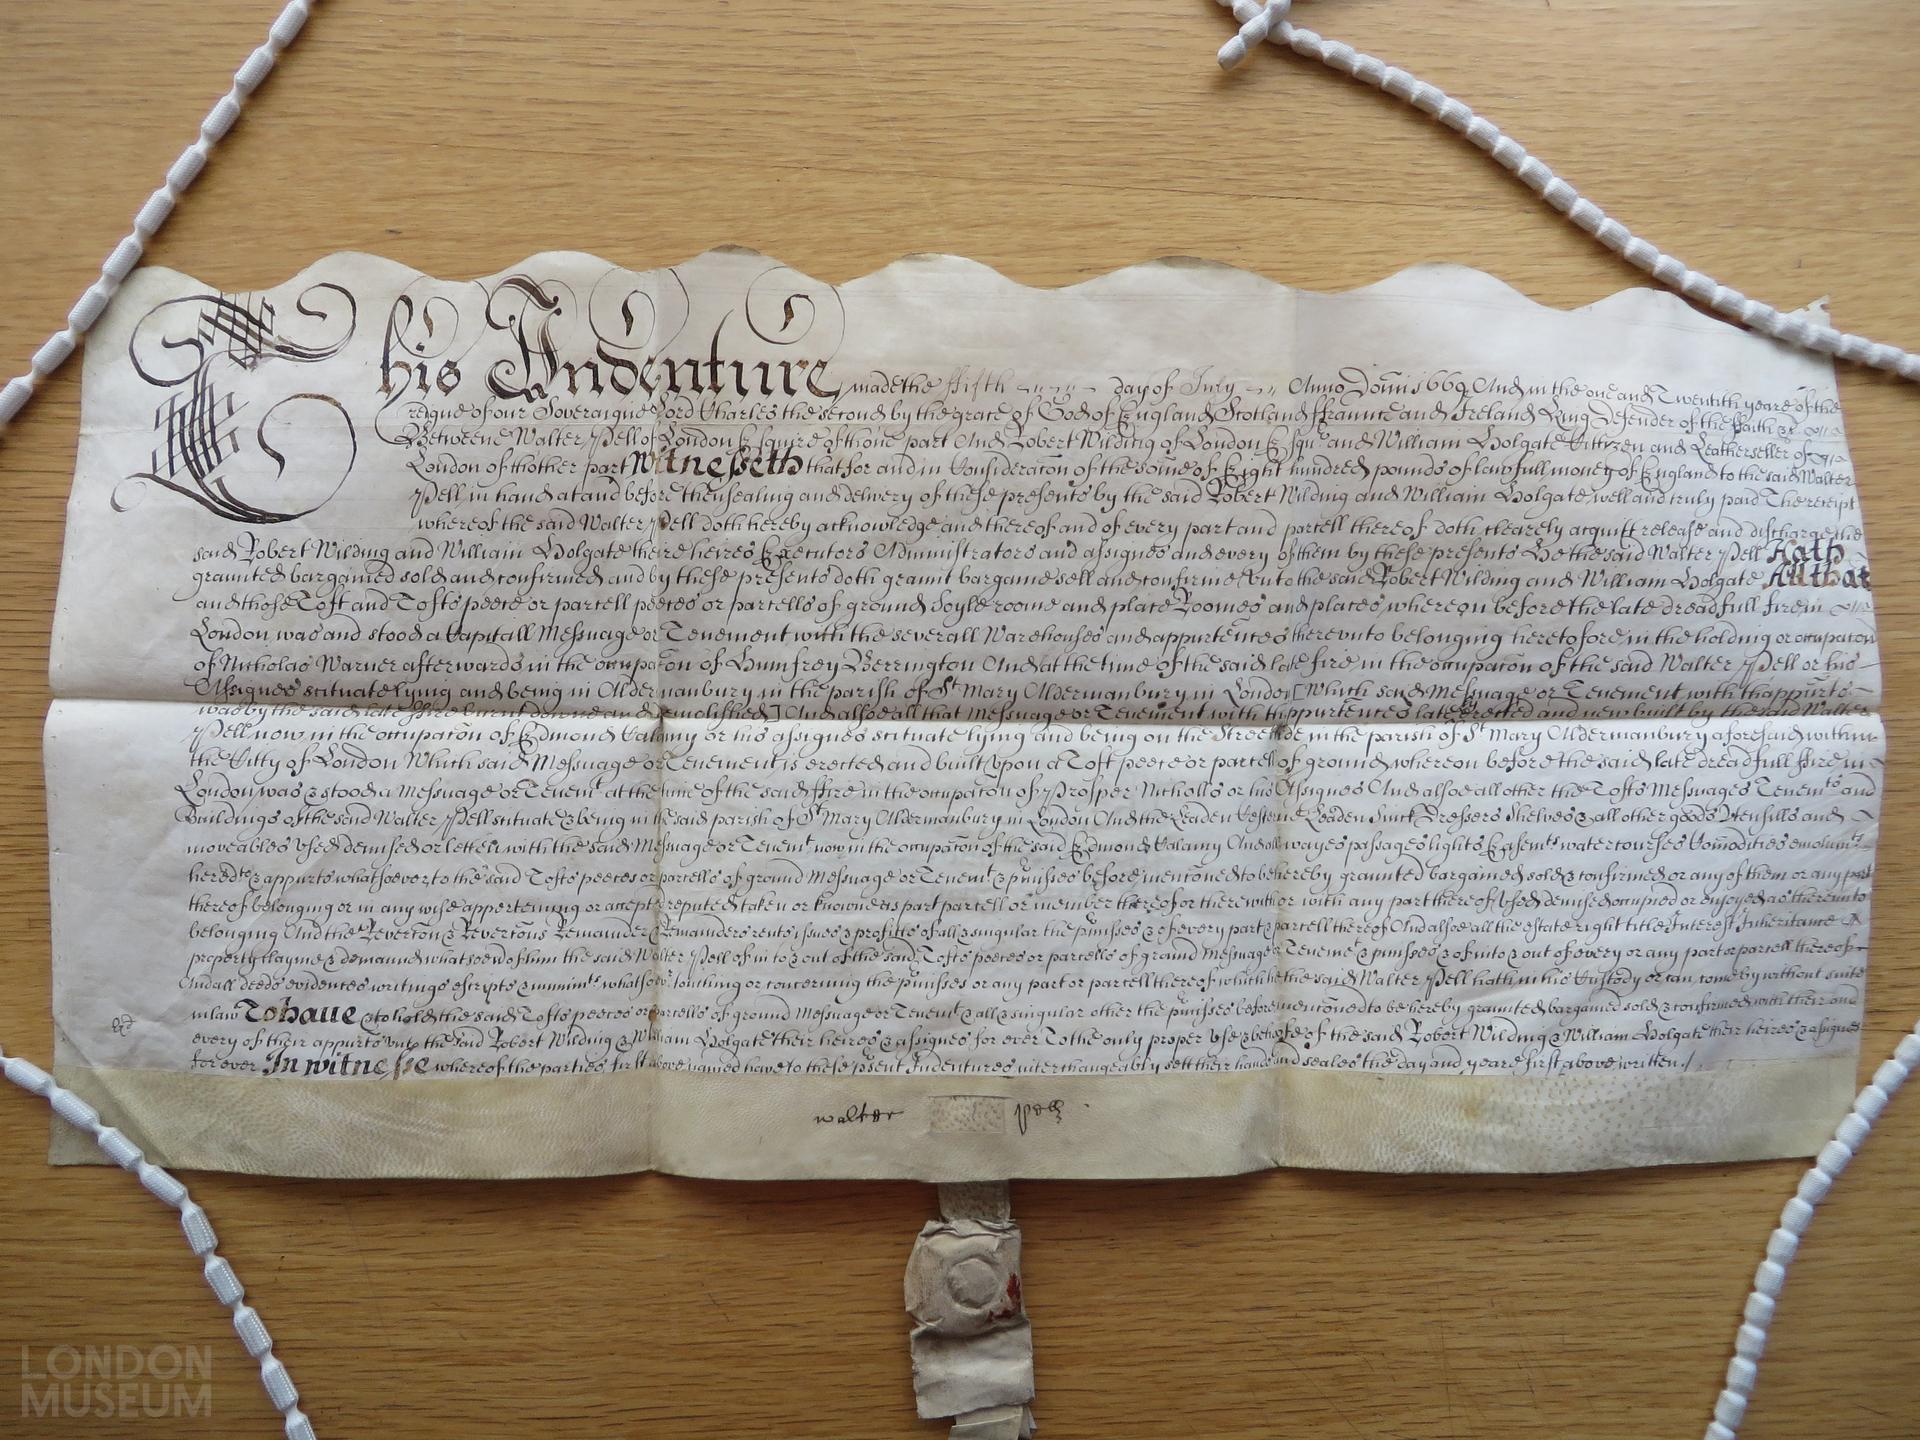 This Indenture made the ffifth day of July Anno Domi 1669 And in the one and Twentith yeare of the
reigne of our Soveraigne Lord Charles the second by the grace of God of England Scotland ffraunce and Ireland King Defender of the ffaith &c
Betweene Walter Pell of London Esquire of thone part And Robert Wilding of London Esqr and William Holgate Cittizen and Leatherseller of
London of thother part Witnesseth that for and in Consideracon of the some of Eight hundred pounds of lawfull money of England to the said Walter
Pell in hand at and before thensealing and delivery of these presents by the said Robert Wilding and William Holgate well and truly paid The receipt
whereof the said Walter Pell doth hereby acknowledge and thereof and of every part and parcell thereof doth clearely acquitt release and discharge the
said Robert Wilding and William Holgate theire heires Executors Administrators and assignes and every of them by these presents He the said Walter Pell Hath
graunted bargained sold and confirmed and by these presents doth graunt bargaine sell and confirme vnto the said Robert Wilding and William Holgate All that
and those Toft and Tofts peece or parcell peeces or parcells of ground soyle roome and place Roomes and places whereon before the late dreadfull fire in
London was and stood a Capitall Messuage or Tenement with the severall Warehouses and appurtences therevnto belonging heretofore in the holding or occupacon
of Nicholas Warner afterwards in the occupacon of Humfrey Berrington And at the time of the said late fire in the occupacon of the said Walter Pell or his
Assignes scituate lying and being in Aldermanbury in the parish of St Mary Aldermanbury in London [Which said Messuage or Tenement with thappurts
was by the said late ffire burnt downe and demolished] And alsoe all that Messuage or Tenement with thappurtences late erected and new built by the said Walter
Pell now in the occupacon of Edmond Calamy or his assignes scituate lying and being on the Streetside in the parish of St Mary Aldermanbury aforesaid within
the Citty of London Which said Messuage or Tenement is erected and built vpon a Toft peece or parcell of ground whereon before the said late dreadfull ffire in
London was & stood a Messuage or Tenemt at the time of the said ffire in the occupacon of Prosper Nicholls or his Assignes And alsoe all other the Tofts Messuages Tenemts and
Buildings of the said Walter Pell scituate & being in the said parish of St Mary Aldermanbury in London And the Leaden Cesterne Leaden Sinck Dressers Shelves & all other goods Vtensills and
moveables vsed demised or letten with the said Messuage or Tenemt now in the occupacon of the said Edmond Calamy And all wayes passages lights Easemts watercourses Comodities emolumts
heredts & appurts whatsoever to the said Tofts peeces or parcells of ground Messuage or Tenemt & pmisses before menconed to be hereby graunted bargained sold & confirmed or any of them or any part
thereof belonging or in any wise apperteining or accepted reputed taken or knowne as part parcell or member thereof or therewith or with any part thereof vsed demised occupied or enjoyed as therevnto
belonging And the Revercon & Revercons Remainder & Remainders rents issues & profitts of all & singular the pmisses & of every part & parcell thereof And alsoe all the estate right title Interest Inheritance
property clayme & demaund whatsoever of him the said Walter Pell of in to & out of the said Tofts peeces or parcells of ground Messuage or Tenemt & pmisses & of in to & out of every or any part or parcell thereof
And all deeds evidences writings escripts & munimts whatsoevr touching or concerning the pmisses or any part or parcell thereof which he the said Walter Pell hath in his Custody or can come by without suite
in law To have & to hold the said Tofts peeces or parcells of ground Messuage or Tenemt & all & singular other the pmisses before menconed to be hereby graunted bargained sold & confirmed with their and
every of their appurts vnto the said Robert Wilding & William Holgate their heires & assignes for ever To the only proper vse & behoofe of the said Robert Wilding & William Holgate their heires & assignes
for ever In witnesse whereof the parties first above named have to these psent Indentures interchangeably sett their hands and seales the day and yeare first above written./
walter Pell
LONDON
MUSEUM